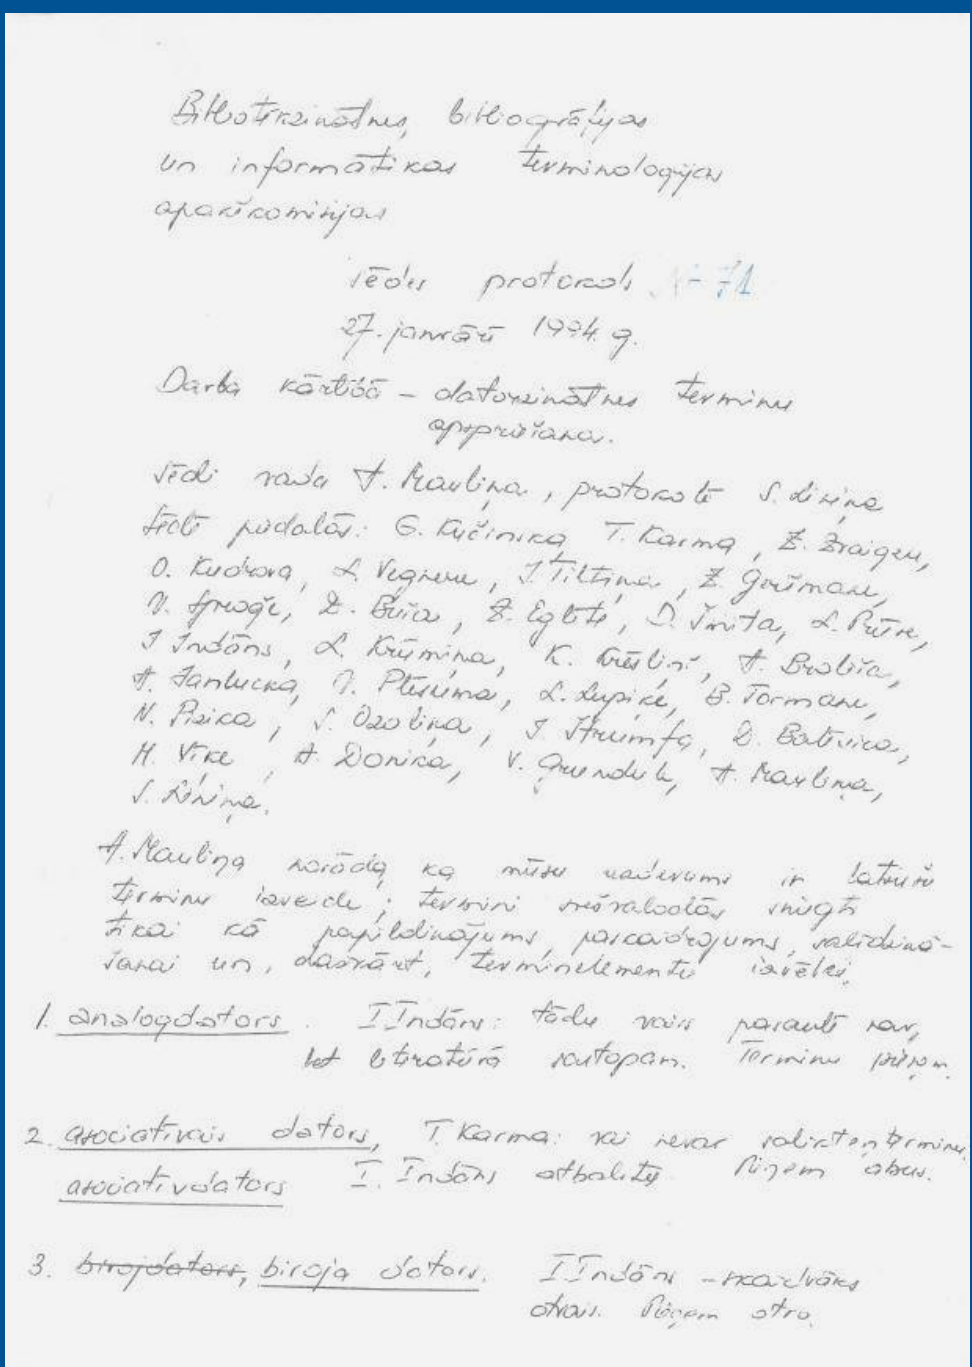 Bibliotēkzinātnes, bibliogrāfijas
un informātikas terminoloģijas
apakškomisijas
sēdes protokols Nr 71
27. janvārī 1994. g.
Darba kārtībā – datorzinātnes terminu
apspriešana.
Sēdi vada A. Mauliņa, protokolē S. Liniņa
Sēdē piedalās: G. Kučinska, T. Karma, Z. Zvaigzne,
O. Kudrova, L. Vegnere, J. Tiltiņa, Z. Grīšmane,
V. Sproģe, D. Buša, Z. Eglīte, D. Šmita, L. Pūre,
I Indāns, L. Krūmiņa, K. Krēsliņš, A. Broliša,
A. Jamlucka, V. Plēsuma, L. Lupiķe, B. Tormane,
N. Pizica, S. Ozoliņa, I Štrumfa, D. Batvica,
M. Vīķe, A. Donika, V. Grundule, A. Mauliņa,
S. Liniņa.
A. Mauliņa norāda, ka mūsu uzdevums ir latviešu
terminu izveide; termini svešvalodās sniegti
tikai kā papildinājums, paskaidrojums, salīdzinā-
šanai un, dažkārt, terminelementu izvēlei.
1. analogdators. I Indāns: tādu vairs pasaulē nav,
bet literatūrā sastopam. Terminu pieņem.
2. asociatīvais dators, T. Karma: vai nevar salikteņterminu.
asociatīvdators I. Indāns atbalsta. Pieņem abus.
3. birojdators, biroja dators. I Indāns – skaidrāks
otrais. Pieņem otro.